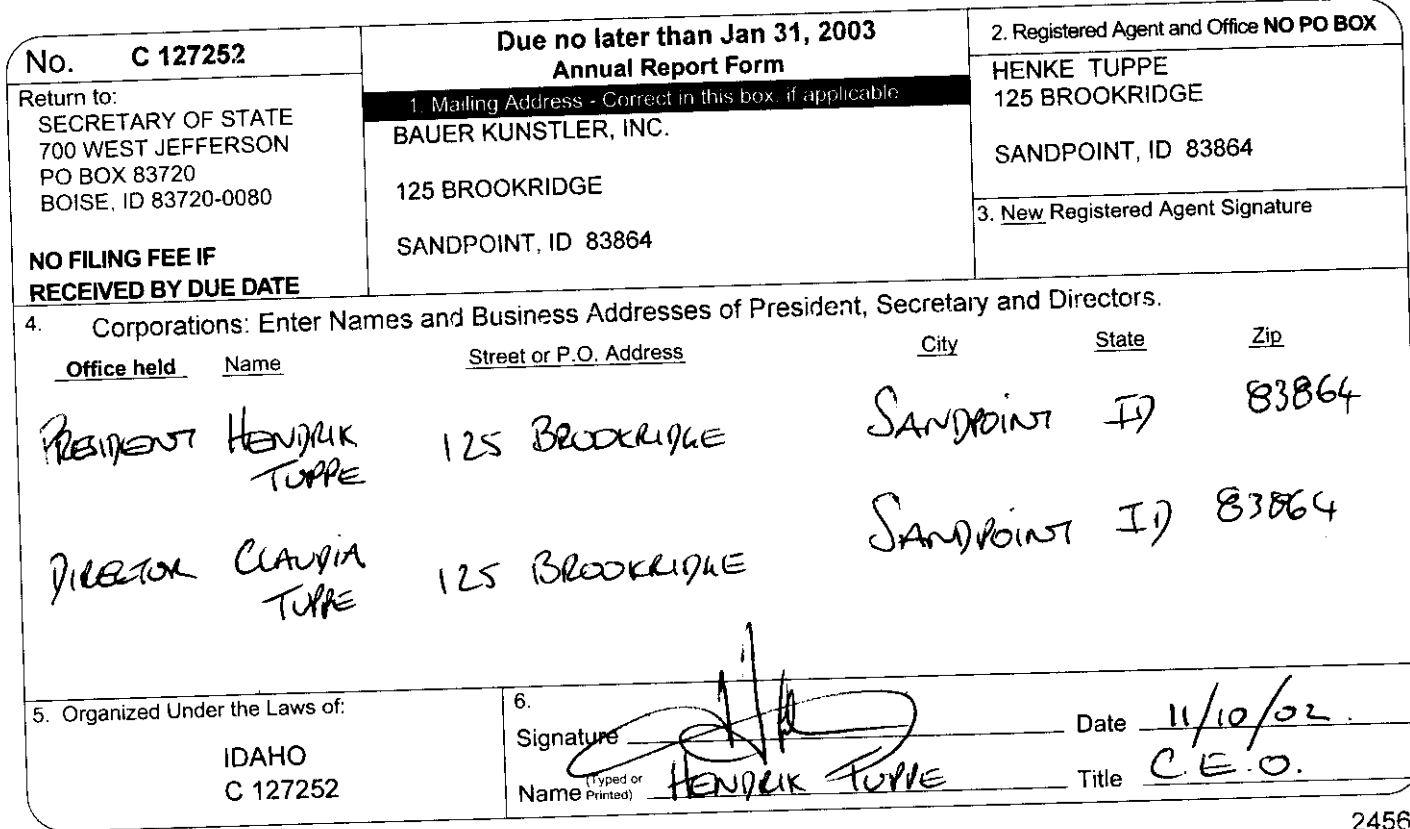 No. C 127252
Return to:
SECRETARY OF STATE
700 WEST JEFFERSON
PO BOX 83720
BOISE, ID 83720-0080
NO FILING FEE IF
RECEIVED BY DUE DATE
Due no later than Jan 31, 2003
Annual Report Form
1. Mailing Address - Correct in this box, if applicable
BAUER KUNSTLER, INC.
125 BROOKRIDGE
SANDPOINT, ID 83864
2. Registered Agent and Office NO PO BOX
HENKE TUPPE
125 BROOKRIDGE
SANDPOINT, ID 83864
3. New Registered Agent Signature
4. Corporations: Enter Names and Business Addresses of President, Secretary and Directors.
Office held Name Street or P.O. Address City State Zip
PRESIDENT HENDRIK 125 BROOKRIDGE SANDPOINT ID 83864
TUPPE
DIRECTOR CLAUDIA 125 BROOKRIDGE SANDPOINT ID 83864
TUPPE
5. Organized Under the Laws of:
IDAHO
C 127252
6.
Signature Date 11/10/02.
Name (Typed or Printed) HENDRIK TUPPE Title C.E.O.
2456